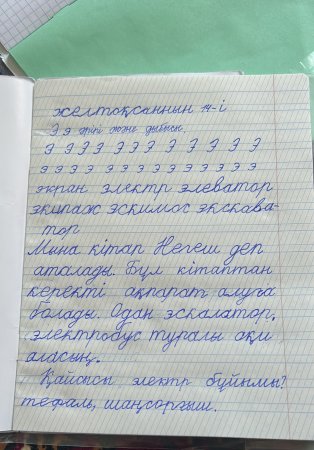 желтоқсанның 14-і
Э э әрпі және дыбысы.
Э Э Э Э Э Э Э Э Э Э
э э э э э э э э э э э э э
экран электр элеватор
экипаж эскимос экскава-
тор
Мына кітап Негеш деп
аталады. Бұл кітаптан
керекті ақпарат алуға
болады. Одан эскалатор,
электробус туралы
аласың.
Қайсысы электр бұйымы?
тефаль, шаңсорғыш.